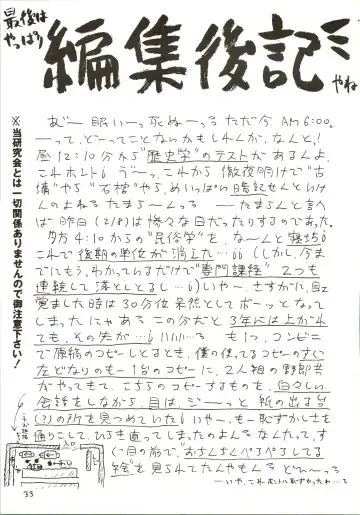 最後は
やっぱり
編集後記
やね
※当研究会とは一切関係ありませんので御注意下さい!
あ゛ー 眠いーっ 死ぬーっる ただ今 AM6:00。
ーって、どーってことないかもしれんが、なんと、!
昼12:10分から"歴史学"のテストがあるんよ。
これホント! う゛ーっ、これから徹夜明けで"古
墳"やら"石棺"やら、めいっぱい暗記せんといけ
んのよねる たまらーんっる ーたまらんと言え
ば昨日(2/8)は惨々な日だったりするのであった。
夕方4:10からの"民俗学"を、なーんと寝坊!
これで後期の単位が消えた…!! (しかし、今ま
でにもう、わかっているだけで"専門課程" 2つも
連続して落としとるし…!) いや~、さすがに、目
覚ました時は30分位呆然としてボーッとなって
しまったにゃある この分だと 3年には上がれ
ても、その先が…! いいいーる も1つ、コンビニ
で原稿のコピーしとるとき、僕の使ってるコピーのすぐ
左どなりのもー1台のコピーに、2人組の野郎共
がやってきて、こちらのコピーするものを、白々しい
会話をしながら、目は、ジーーっと紙の出る台
(?)の所を見つめていた! いやー、もー恥ずかしさを
通りこして、ひらき直ってしまったのよんる なんたって、す
ぐ目の前で、"おちんちんぺろぺろしてる
絵"を見られてたんやもんる どひーっる
ーいや、これホントに恥ずかったわーる
33